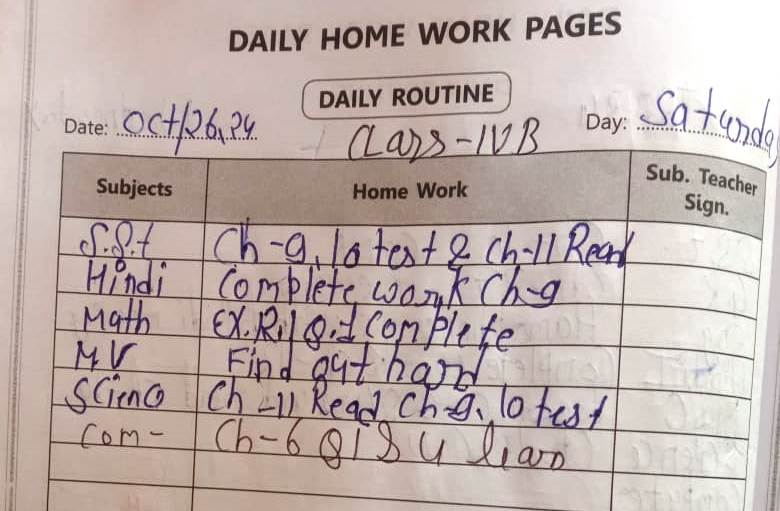 DAILY HOME WORK PAGES
DAILY ROUTINE
Date: Oct/26,24 Day: Saturday
Class-IV B
Subjects Home Work Sub. Teacher Sign.
S.S.t Ch-9, 10 test & Ch-11 Read
Hindi Complete work Ch-9
Math EX. R.1 Q.1 Complete
M V Find out hard
Scienc Ch-11 Read Ch-9, 10 test
Com- Ch-6 Q 1 &